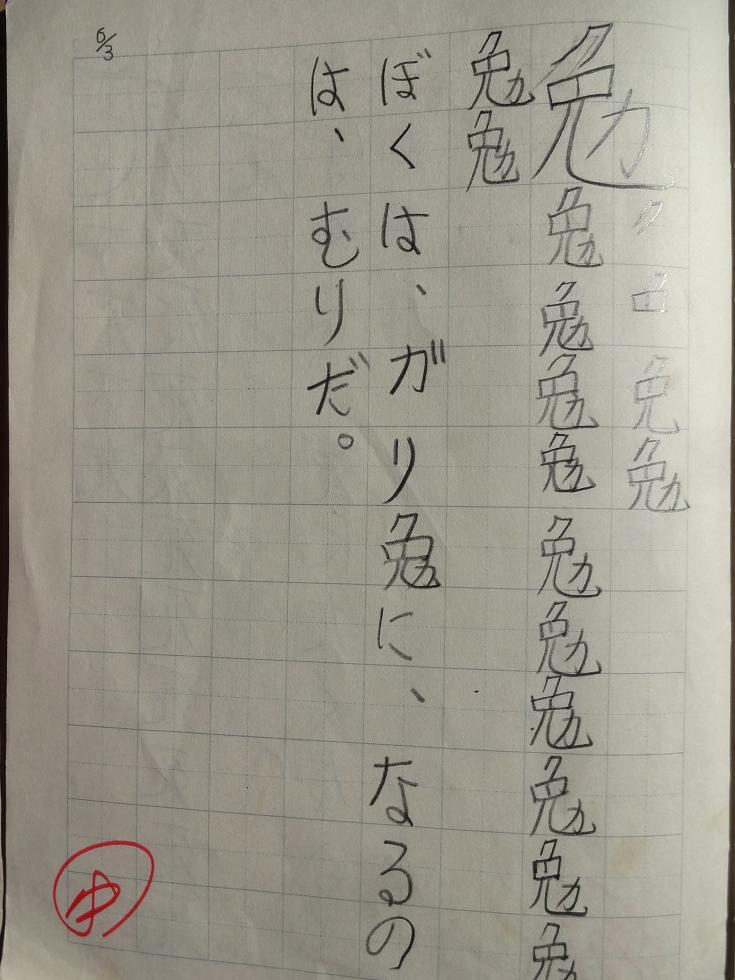 6/3
ク免勉
勉勉勉勉勉勉勉勉勉勉勉
勉勉
ぼくは、ガリ勉に、なるの
は、むりだ。
ゆ